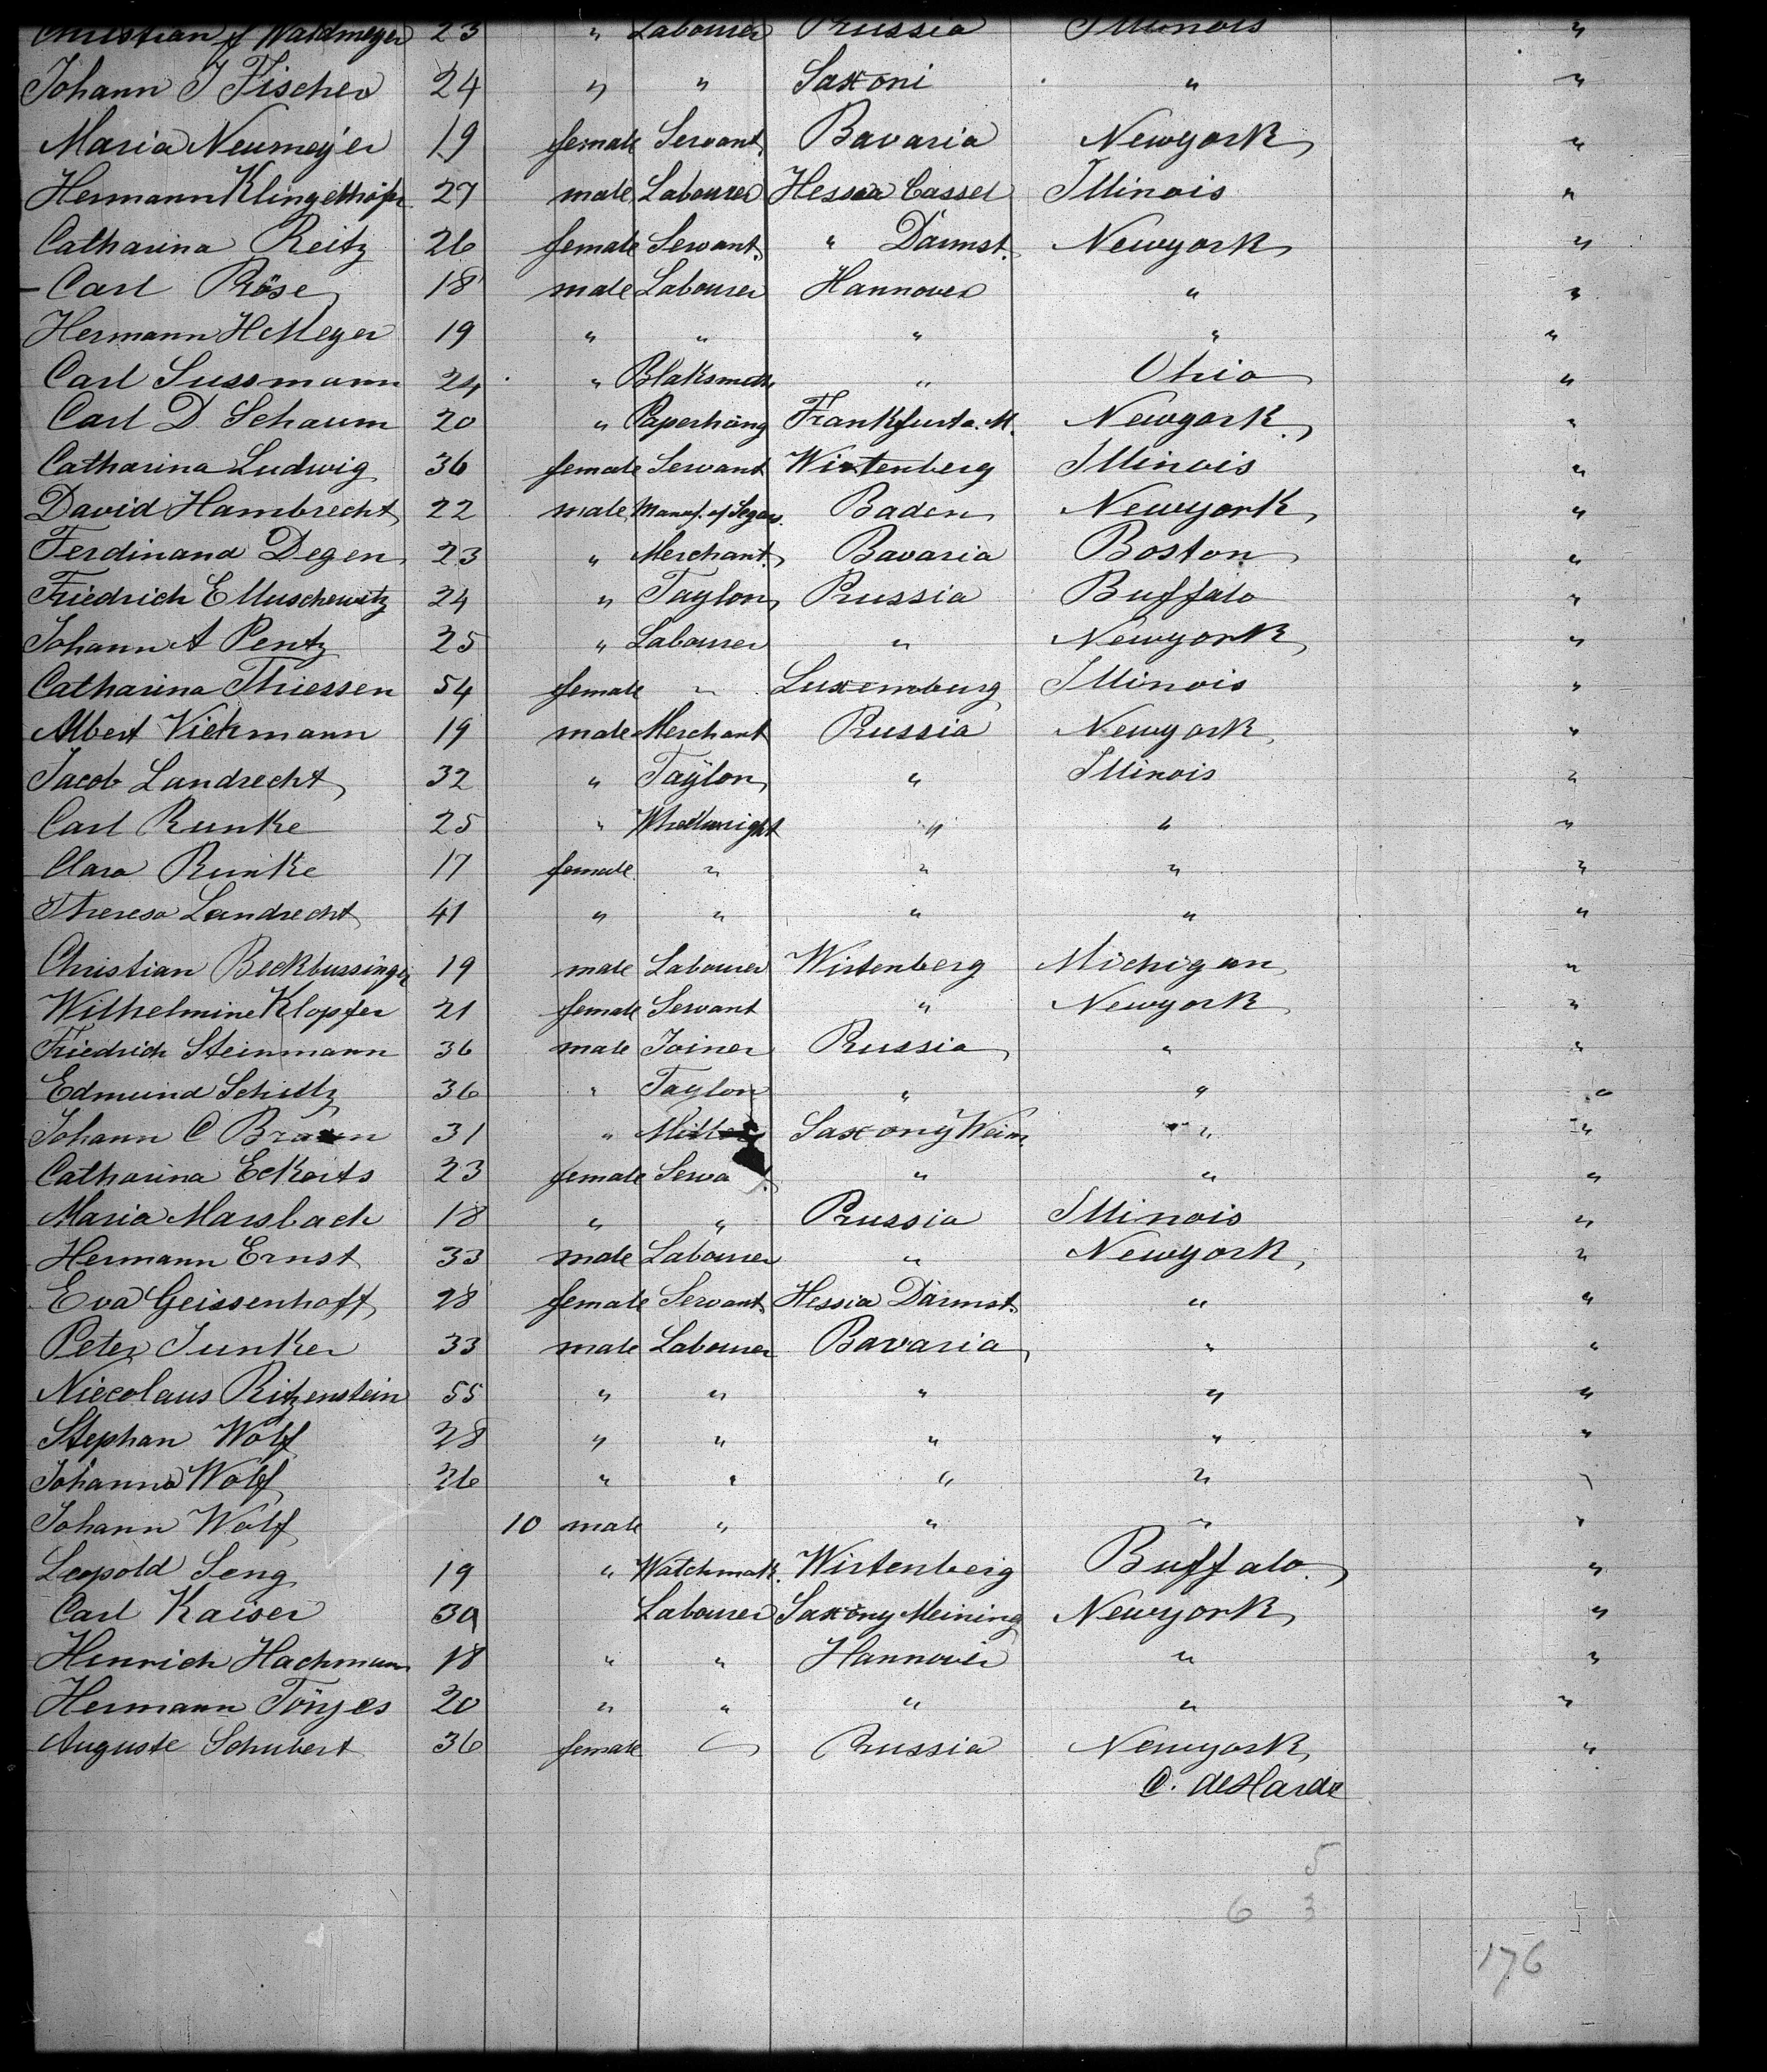 Christian J Waldmeyer 23 " Labourer Prussia Illinois "
Johann J Fischer 24 " " Saxoni " "
Maria Neumeyer 19 female Servant Bavaria Newyork "
Hermann Klingelhöfer 27 male Labourer Hessia Cassel Illinois "
Catharina Reitz 26 female Servant. " Darmst. Newyork "
Carl Röse 18 male Labourer Hannover " "
Hermann H Meyer 19 " " " " "
Carl Sussmann 24 " Blaksmith " Ohio "
Carl D Schaum 20 " Paperhäng Frankfurt a. M. Newyork "
Catharina Ludwig 36 female Servant Wirtenberg Illinois "
David Hambrecht 22 male Manuf. of Segars Baden Newyork "
Ferdinand Degen 23 " Merchant. Bavaria Boston "
Friedrich E Muschewitz 24 " Taylor Prussia Buffalo "
Johann A Pentz 25 " Labourer " Newyork "
Catharina Thiessen 54 female " Luxemburg Illinois "
Albert Viehmann 19 male Merchant Prussia Newyork "
Jacob Landrecht 32 " Taylor " Illinois "
Carl Runke 25 " Whellwright " " "
Clara Runke 17 female " " " "
Theresa Landrecht 41 " " " " "
Christian Beckbussinger 19 male Labourer Wirtenberg Michigan "
Wilhelmine Klopfer 21 female Servant " Newyork "
Friedrich Steinmann 36 male Joiner Prussia " "
Edmund Schultz 36 " Taylor " " "
Johann C Braun 31 " Miller Saxony Weim. " "
Catharina Eckarts 23 female Serva t. " " "
Maria Marsbach 18 " " Prussia Illinois "
Hermann Ernst 33 male Labourer " Newyork "
Eva Geissenhoff 28 female Servant Hessia Darmst. " "
Peter Junker 33 male Labourer Bavaria " "
Niccolaus Ritzenstein 55 " " " " "
Stephan Wolf 28 " " " " "
Johanna Wolf 26 " " " " "
Johann Wolf 10 male " " " "
Leopold Seng 19 " Watchmak. Wirtenberg Buffalo. "
Carl Kaiser 30 Labourer Saxony Meining Newyork "
Henrich Hachmann 18 " " Hannover " "
Hermann Tönjes 20 " " " " "
Auguste Schubert 36 female " Prussia Newyork "
C. deHarde
5
6 3
176